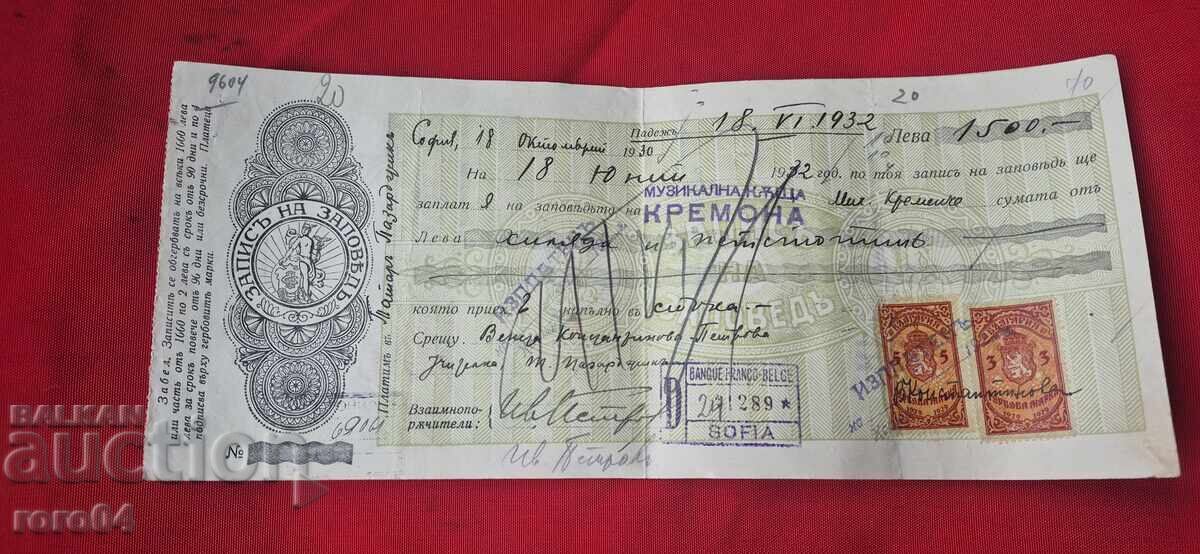 9604
20
20
Забел. Записитѣ се обгербватъ на всѣки 1660 лева
или часть отъ 1660 по 2 лева съ срокъ отъ 90 дни и по 4
лева за срокъ повече отъ 90 дни или безсрочни. Платеца
подписва върху гербовитѣ марки.
ЗАПИСЪ НА ЗАПОВѢДЬ
№
6914
Платимъ въ Пазарджикъ
София, 18 Октомврий 1930
Падежъ 18. VI. 1932 Лева 1500.—
На 18 Юний 1932 год. по тоя записъ на заповѣдь ще
заплатя на заповѣдьта на МУЗИКАЛНА КѪЩА КРЕМОНА сумата отъ
Лева хиляда и петстотинъ
която приехъ напълно въ стока.—
Срещу: Венета Константинова-Петрова
Учителка Пазарджикъ
Взаимнопо-
рѫчители: Ив. Петров
Ив. Петровъ
BANQUE FRANCO-BELGE
SOFIA
5 5
3 3
Константинова
БАЛКАН
auction
roro64